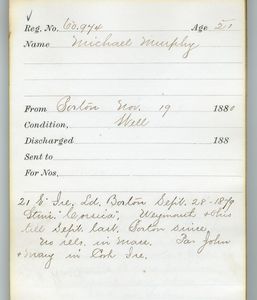 √
Reg. No. 60.974 Age 21
Name Michael Murphy
From Boston Nov. 19 1880
Condition, Well
Discharged 188
Sent to
For Nos.
21 E' Ire, Ld. Boston Sept. 28-1879
Stmr. "Corsica", Weymouth +
till Sept. last. Boston since,
No rels. in Mass. Pa. John
+ Mary in Cork Ire.